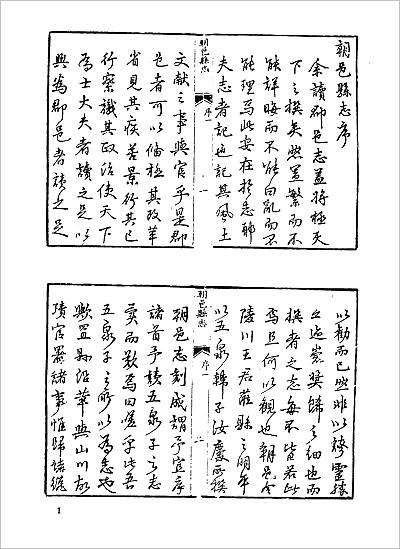 朝邑縣志序
余讀郡邑志蓋將極天
下之撰矣然置繁而不
能詳晦而不能白亂而不
能理焉此安在於志耶
夫志者記也記其風土
朝邑縣志
序一
一
文獻之事與官乎是郡
邑者可以備極其改革
省見其疾苦景行其已
行察識其政治使天下
為士大夫者讀之足以
興為郡邑者讀之足
以勸而已然非以誇靈勝
之迹崇奬飾之細也而
撰者之志每不皆若此
焉且何以觀也朝邑令
陵川王君莅縣之明年
以五泉韓子汝慶所撰
朝邑縣志
序一
二
朝邑志刻成謂予宜序
諸首予讀五泉子之志
而歎為曰嗟乎此吾
五泉子之所以為志也
歟置縣沿革與山川故
蹟官署緒事惟歸諸總
1